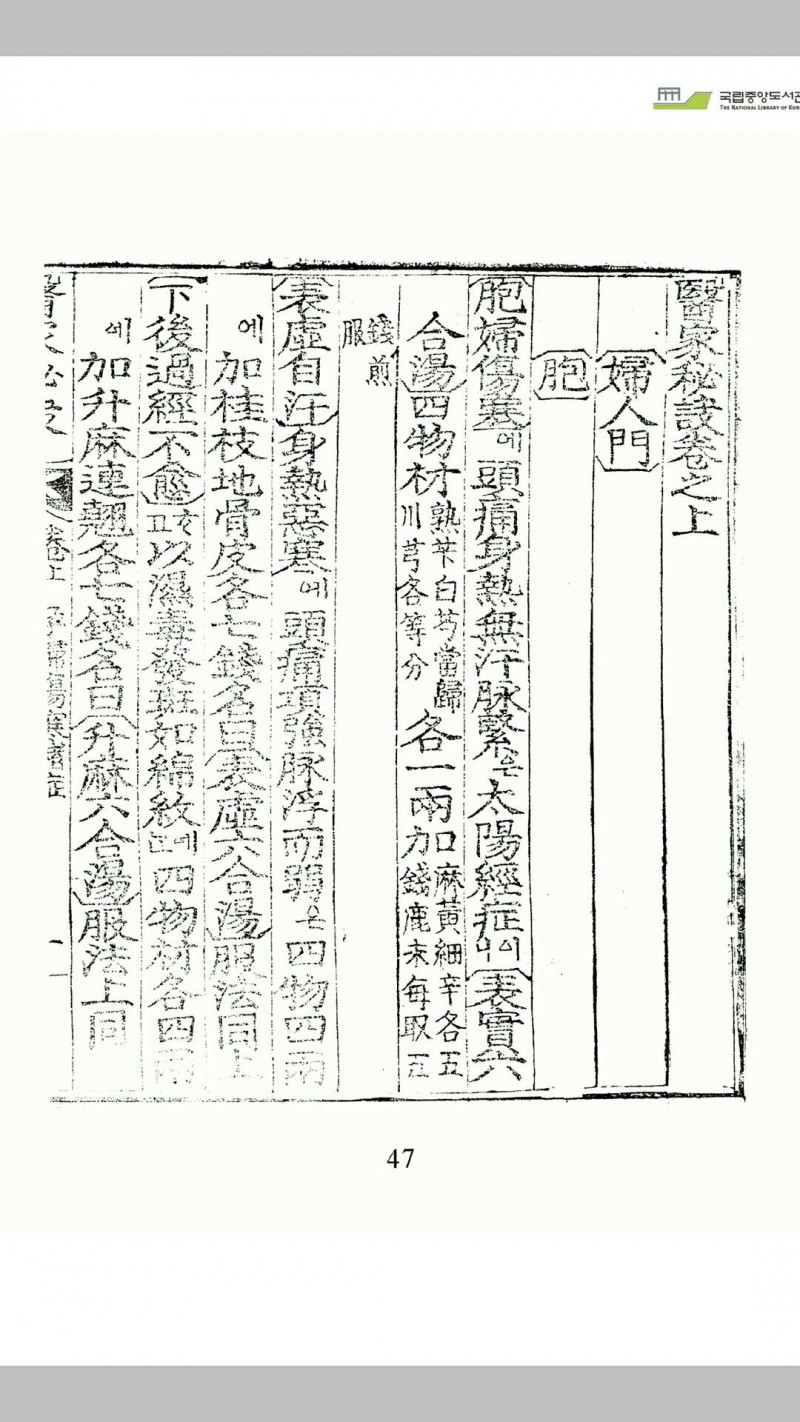 국립중앙도서관
THE NATIONAL LIBRARY OF KOR
醫家秘訣卷之上
婦人門
胞
胞婦傷寒에頭痛身熱無汗脉緊은太陽經症이니表實六
合湯四物材熟芐白芍當歸川芎各等分各一兩加麻黃細辛各五錢麁末每取五
錢煎服
表虛自汗身熱惡寒에頭痛項強脉浮而弱은四物四兩
에加桂枝地骨皮各七錢名曰表虛六合湯服法同上
下後過經不愈고以濕毒發斑如綿紋에四物材各四兩
에加升麻連翹各七錢名曰升麻六合湯服法上同
卷上 婦傷寒諸症 一
47